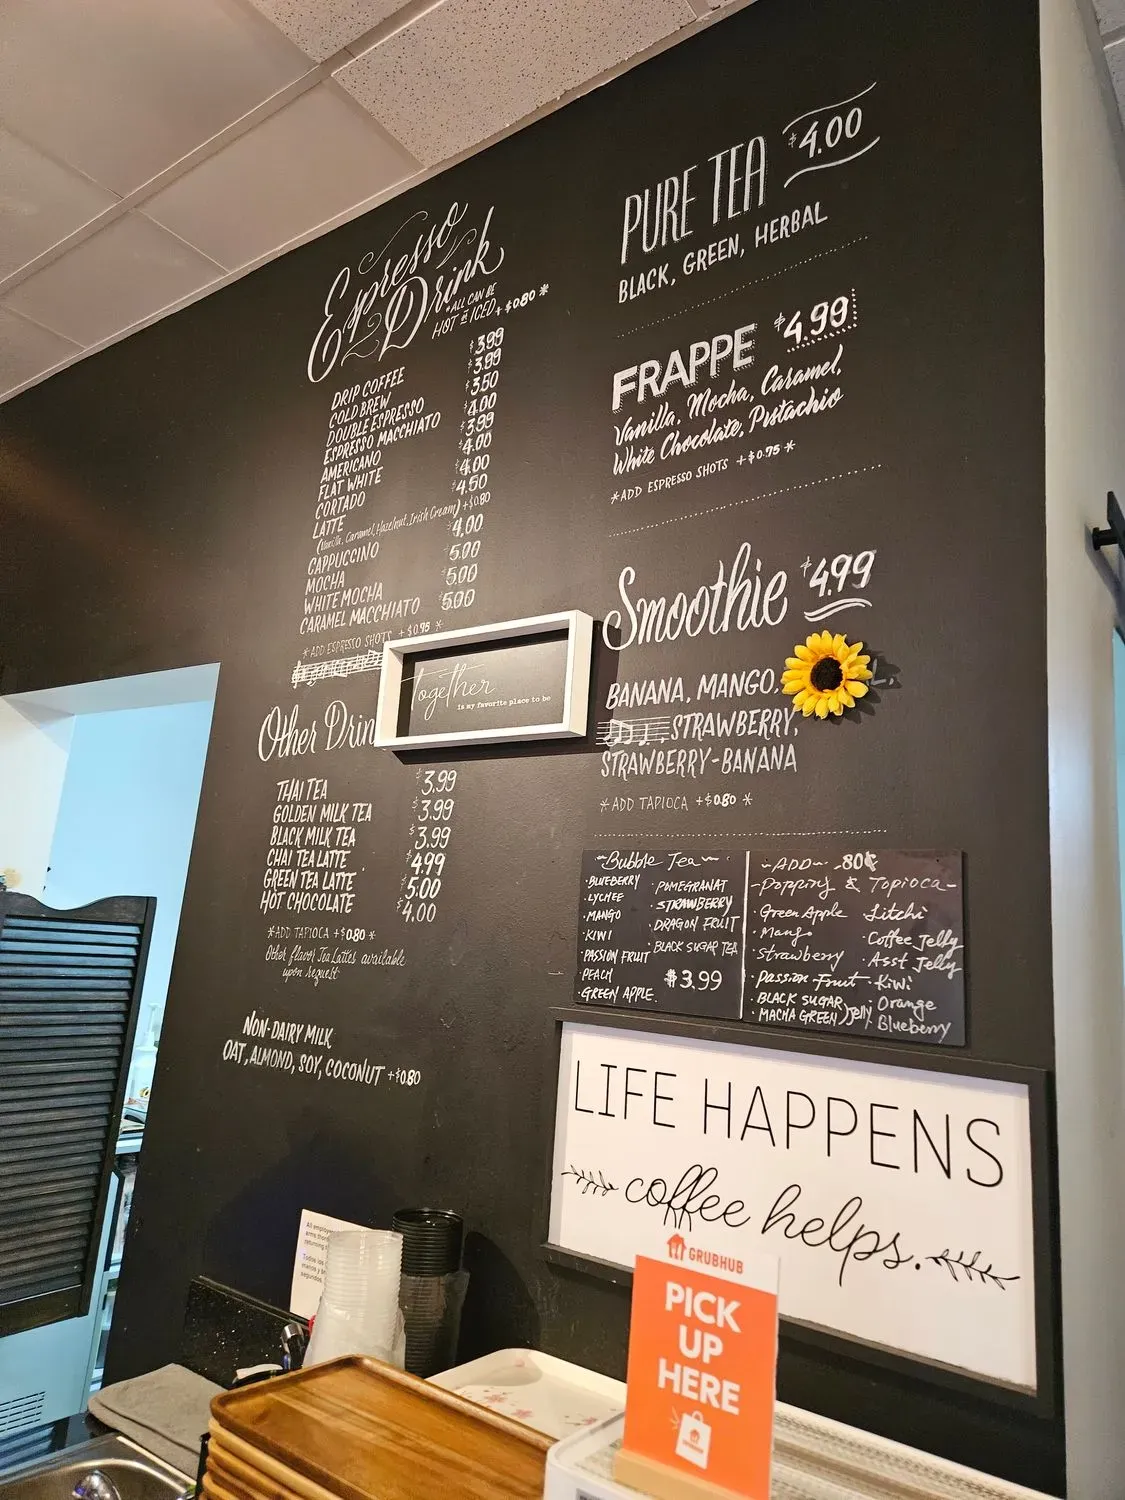 Espresso
Drink
*ALL CAN BE
HOT or ICED +$0.80 *
DRIP COFFEE $3.99
COLD BREW $3.99
DOUBLE ESPRESSO $3.50
ESPRESSO MACCHIATO $4.00
AMERICANO $3.99
FLAT WHITE $4.00
CORTADO $4.00
LATTE $4.50
(Vanilla, Caramel, Hazelnut, Irish Cream) +$0.80
CAPPUCCINO $4.00
MOCHA $5.00
WHITE MOCHA $5.00
CARAMEL MACCHIATO $5.00
*ADD ESPRESSO SHOTS +$0.95 *
together
is my favorite place to be
Other Drin
THAI TEA $3.99
GOLDEN MILK TEA $3.99
BLACK MILK TEA $3.99
CHAI TEA LATTE $4.99
GREEN TEA LATTE $5.00
HOT CHOCOLATE $4.00
*ADD TAPIOCA +$0.80 *
Other flavor Tea Lattes available
upon request
NON-DAIRY MILK
OAT, ALMOND, SOY, COCONUT +$0.80
PURE TEA $4.00
BLACK, GREEN, HERBAL
FRAPPE $4.99
Vanilla, Mocha, Caramel,
White Chocolate, Pistachio
*ADD ESPRESSO SHOTS +$0.75 *
Smoothie $4.99
BANANA, MANGO,
STRAWBERRY,
STRAWBERRY-BANANA
*ADD TAPIOCA +$0.80 *
~Bubble Tea~
·BLUEBERRY
·LYCHEE
·MANGO
·KIWI
·PASSION FRUIT
·PEACH
·GREEN APPLE
·POMEGRANAT
·STRAWBERRY
·DRAGON FRUIT
·BLACK SUGAR TEA
$3.99
~ADD~ .80¢
-Popping & Tapioca-
·Green Apple
·Mango
·Strawberry
·Passion Fruit
·BLACK SUGAR
·MACHA GREEN Jelly
·Litchi
·Coffee Jelly
·Asst Jelly
·Kiwi
·Orange
·Blueberry
LIFE HAPPENS
coffee helps.
GRUBHUB
PICK
UP
HERE